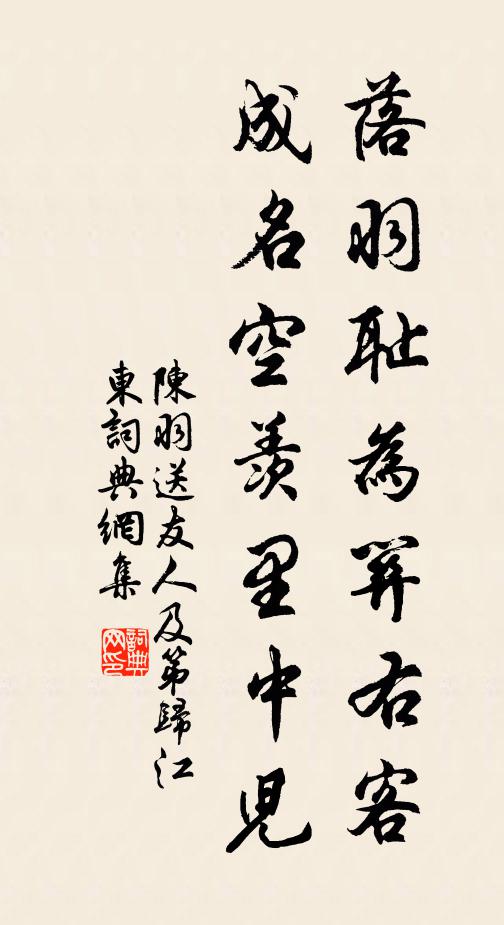 落羽耻為關右客
成名空羨里中兒
陳羽送友人及第歸江
東詞典網集
詞典網印